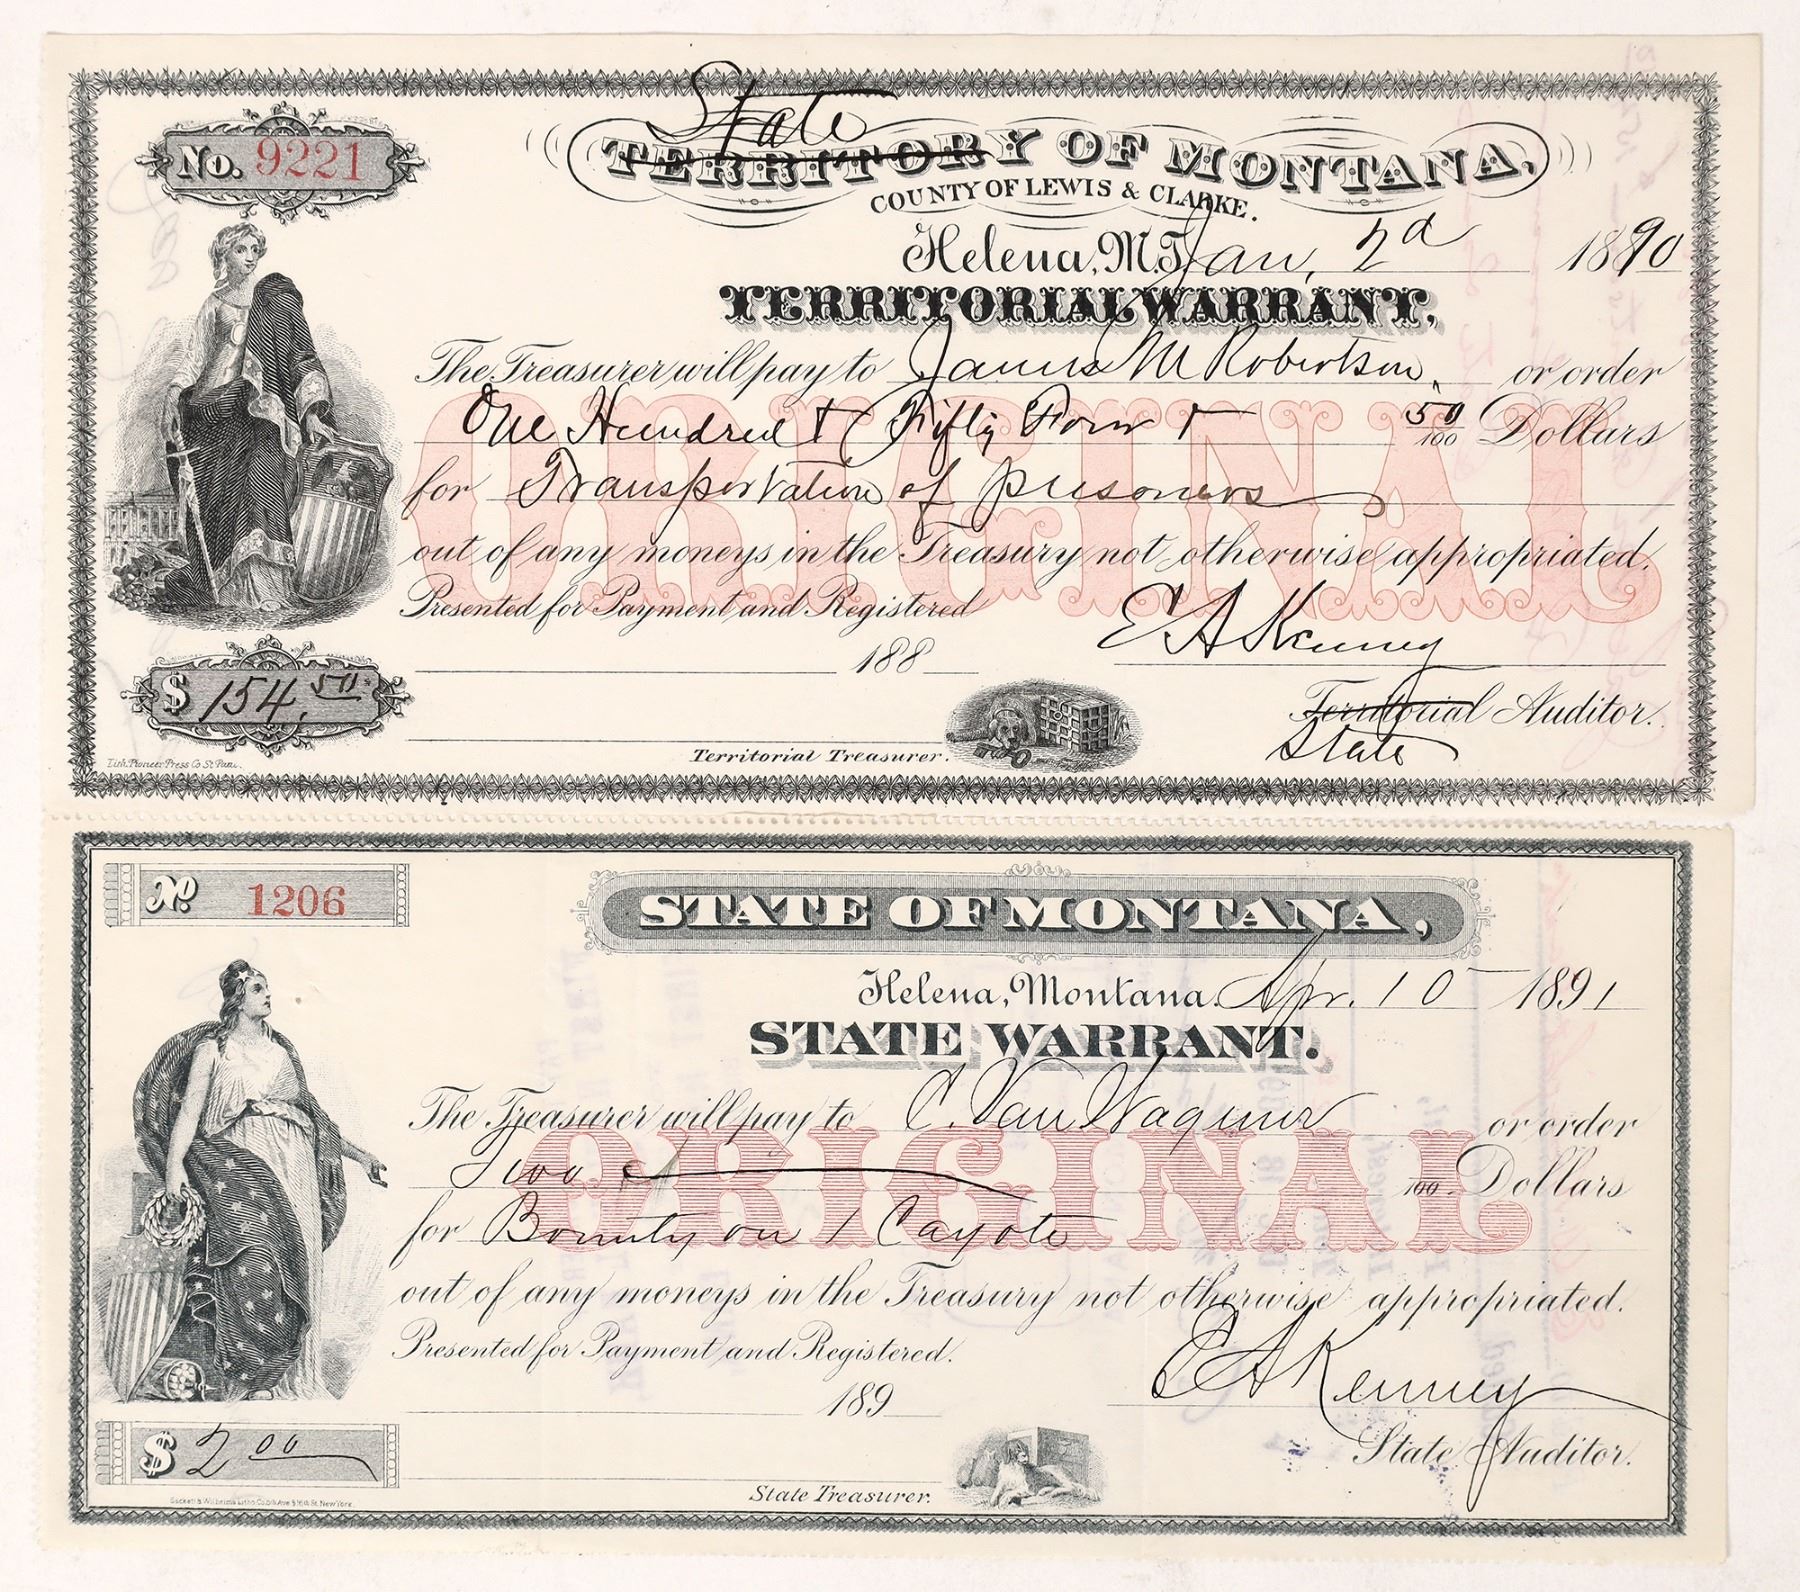 State
No. 9221
TERRITORY OF MONTANA,
COUNTY OF LEWIS & CLARKE.
Helena, M.T. Jan, 2d 1890
TERRITORIAL WARRANT,
The Treasurer will pay to James M Robertson, or order
One Hundred & Fifty Four & 50/100 Dollars
for Transportation of prisoners
ORIGINAL
out of any moneys in the Treasury not otherwise appropriated.
Presented for Payment and Registered
E A Kenney
188
$ 154.50
Territorial Auditor.
State
Territorial Treasurer.
Lith. Pioneer Press Co St Paul.
No 1206
STATE OF MONTANA,
Helena, Montana. Apr. 10 1891
STATE WARRANT.
The Treasurer will pay to C. Van Wagner or order
Two & 100 Dollars
for Bounty on 1 Cayote
ORIGINAL
out of any moneys in the Treasury not otherwise appropriated.
Presented for Payment and Registered.
E A Kenney
189
$ 2 00
State Auditor.
State Treasurer.
Sackett & Wilhelms Litho. Co. 5th Ave & 16th St. New York.